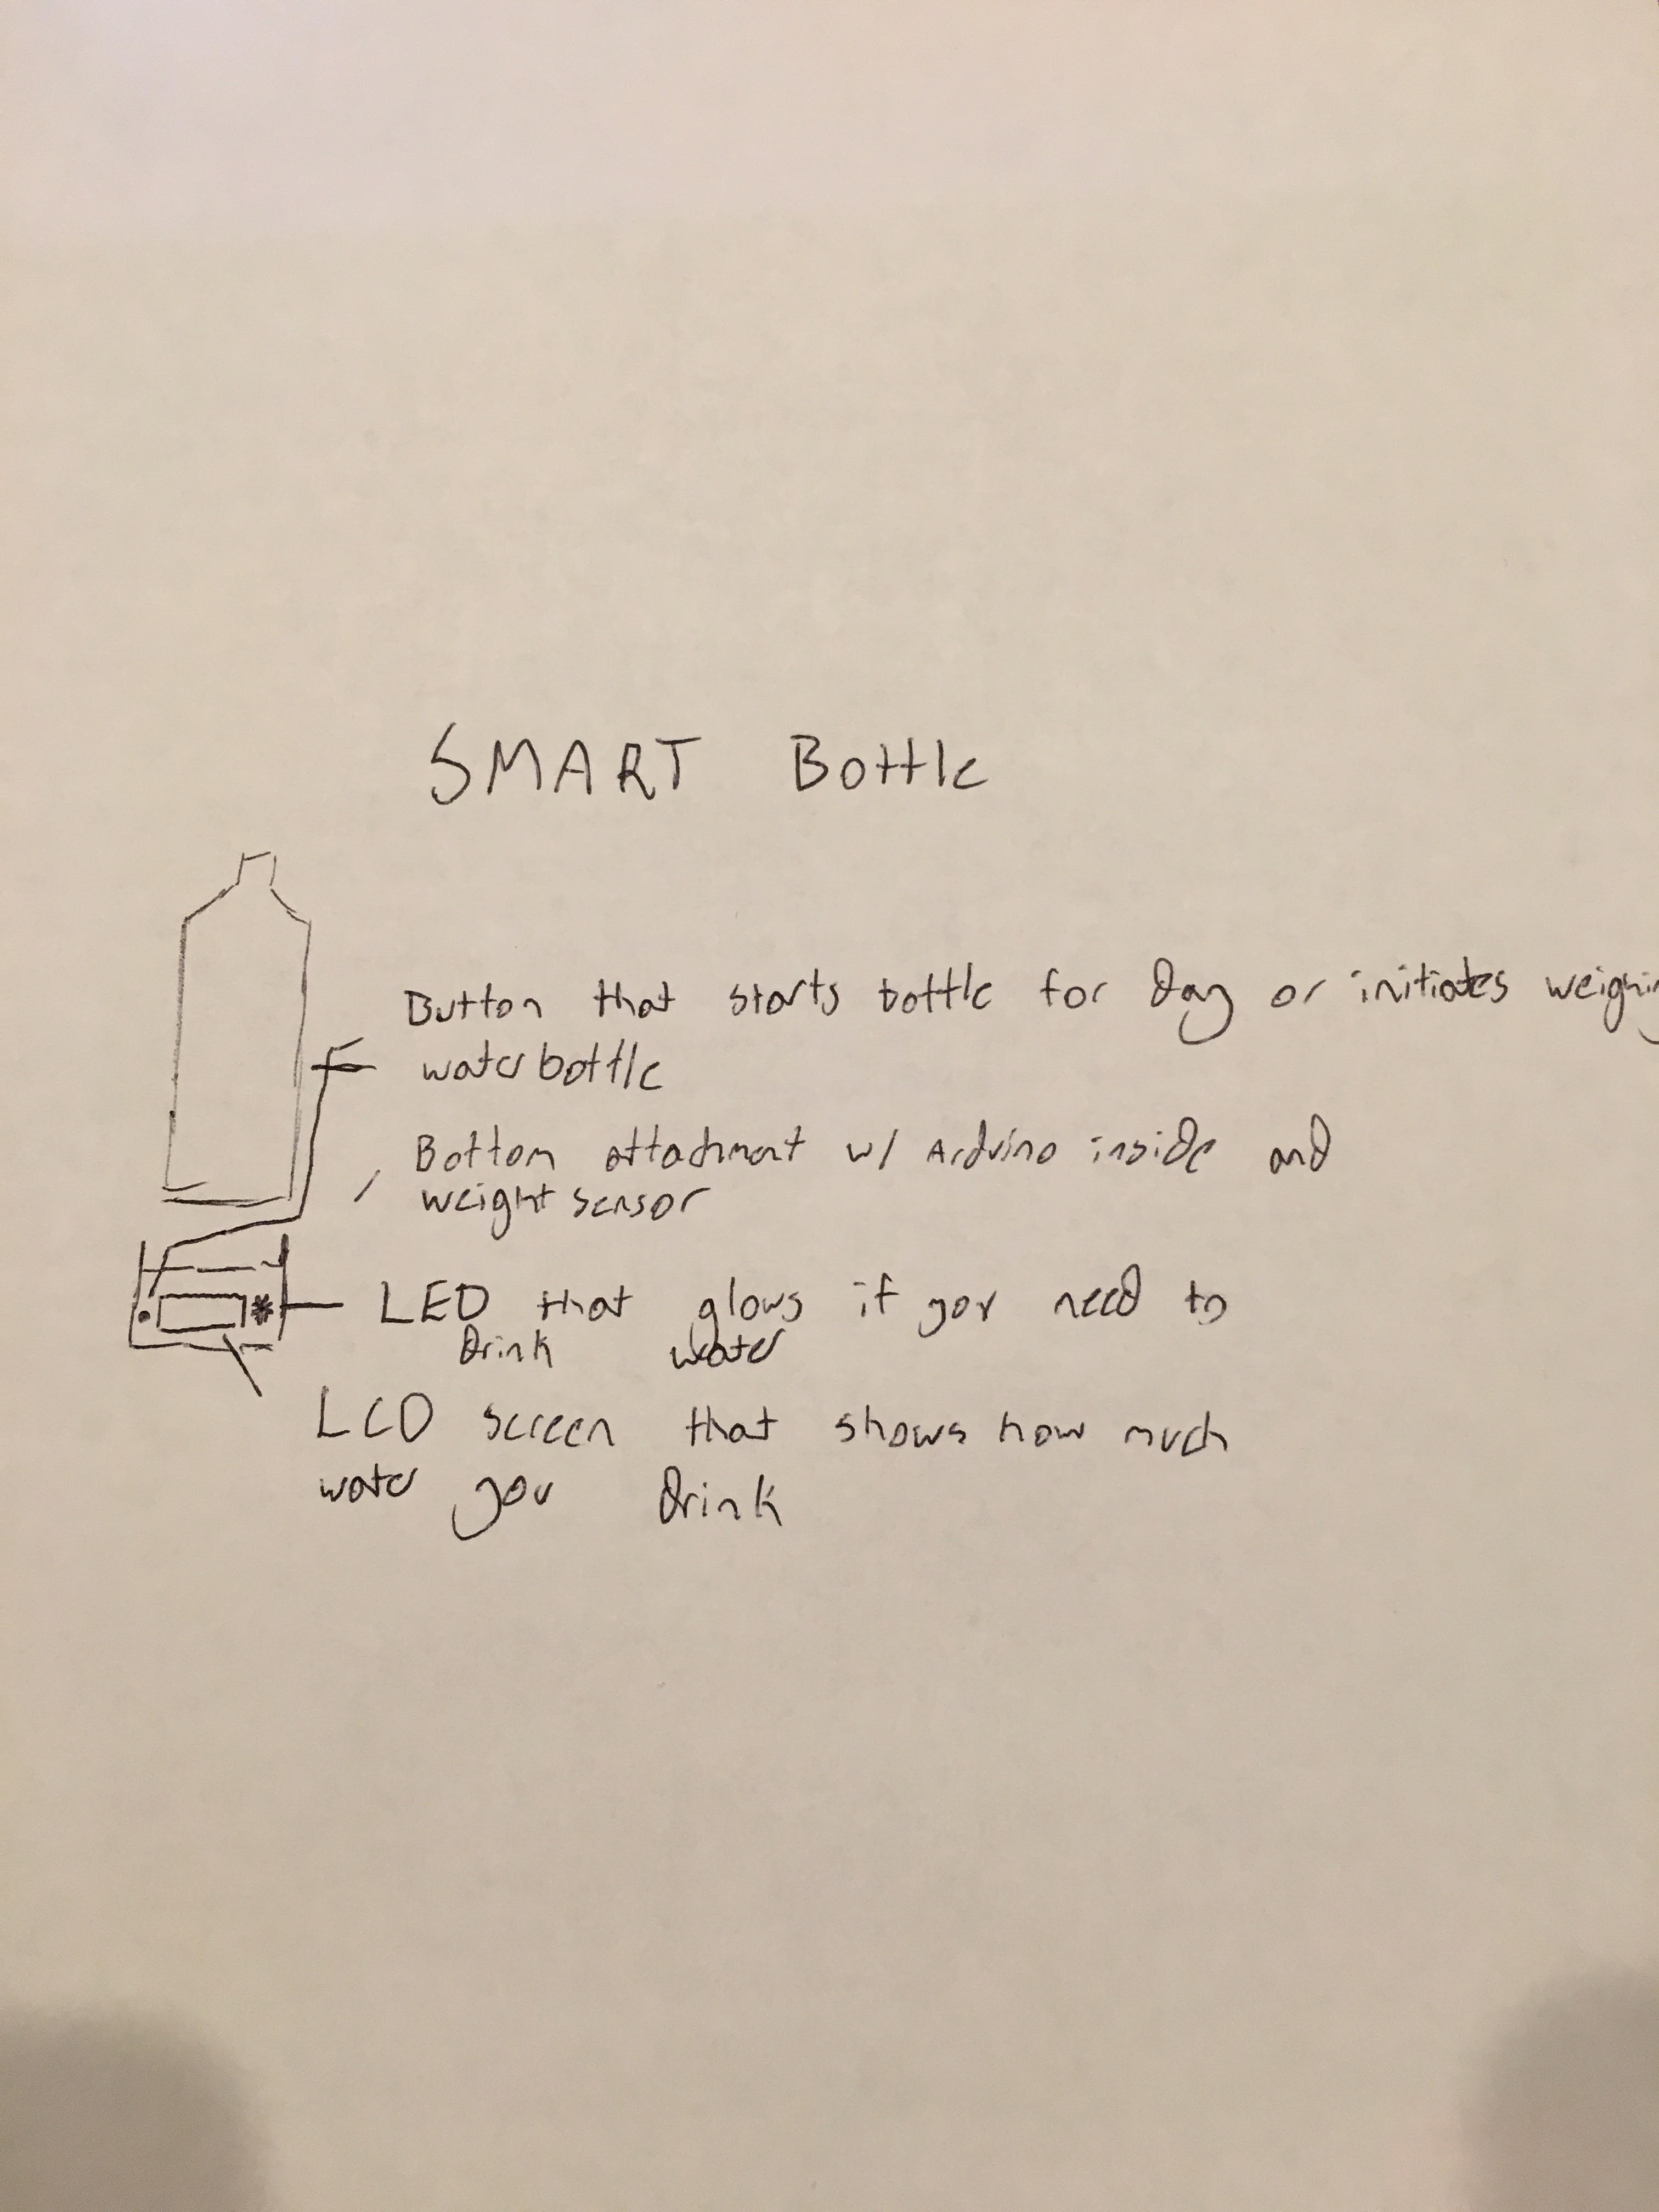 SMART Bottle
Button that starts bottle for day or initiates
water bottle
Bottom attachment w/ Arduino inside and
weight sensor
LED that glows if you need to
drink water
LCD screen that shows how much
water you drink